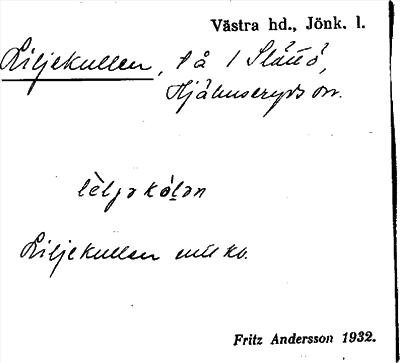 Västra hd., Jönk. l.
Liljekullen, på 1 Slättö,
Hjälmseryds sn.
lèljəkólən
Liljekullen enl kb.
Fritz Andersson 1932.